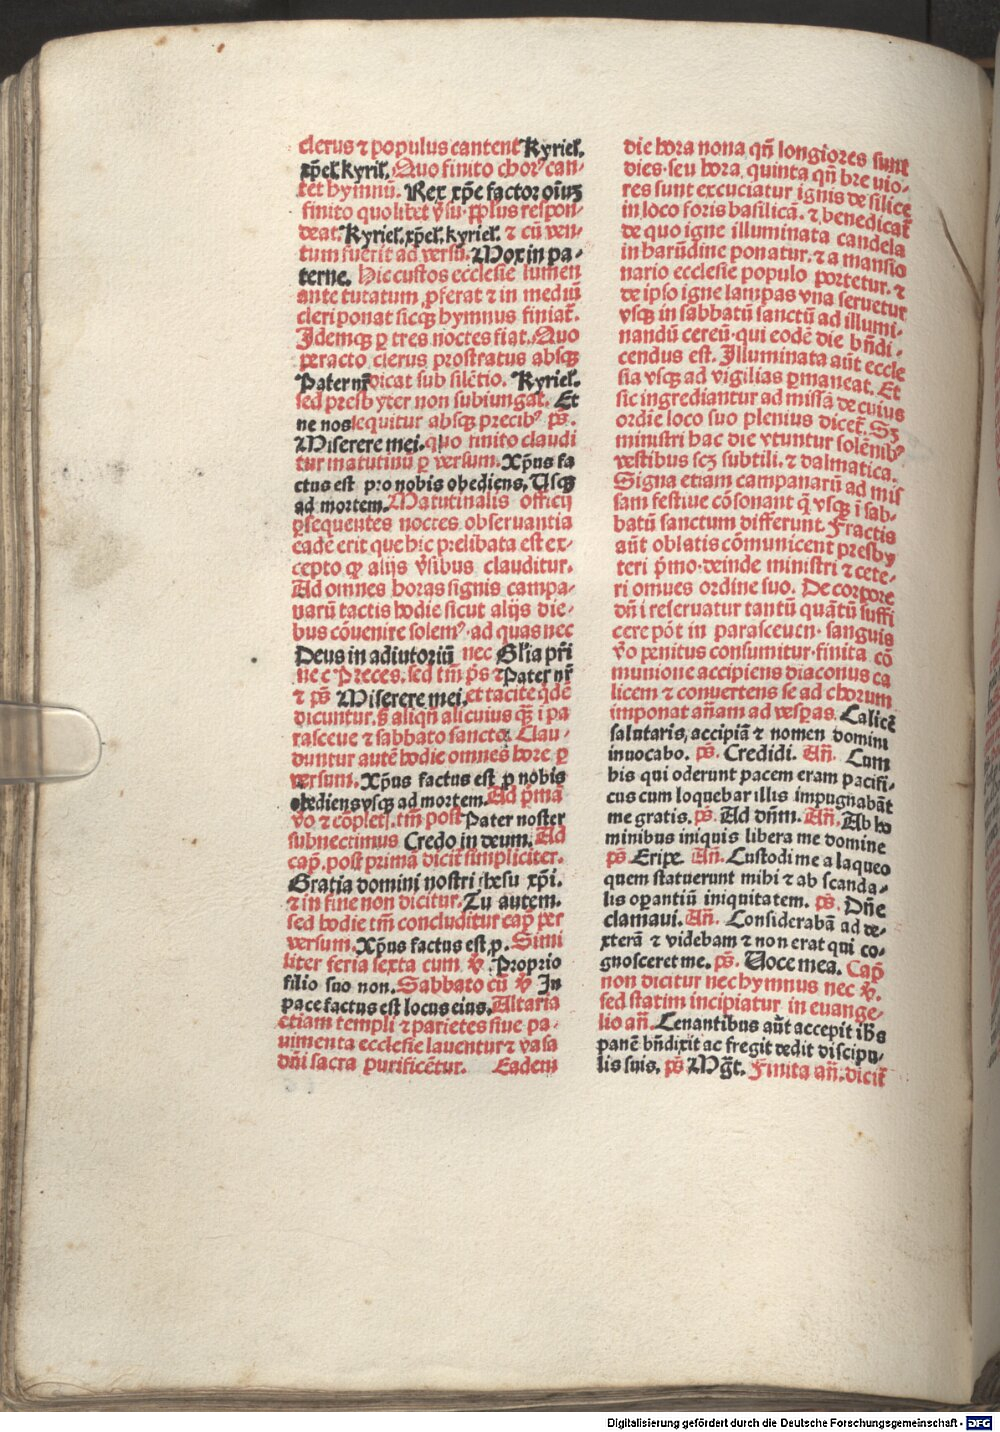 clerus ⁊ populus cantent Kyriel̄.
xp̄el̄. kyril̄. Quo finito chorꝰ can-
tēt hymnū. Rex xp̄e factor oīuȝ
finito quolibet v̄su. pp̄lus respon-
deat. Kyriel̄. xp̄el̄. kyriel̄. ⁊ cū ven-
tum fuerit ad versū. Mox in pa-
terne. Hic custos ecclesie lumen
ante tutatum ꝓferat ⁊ in mediū
cleri ponat sicqꝫ hymnus finiat̄.
Idemqꝫ ꝑ tres noctes fiat. Quo
peracto clerus prostratus absqꝫ
Pater nr̄ dicat sub silētio. Kyriel̄.
sed presbyter non subiungat. Et
ne nos sequitur absqꝫ precibꝰ ps̄.
Miserere mei. quo finito claudi
tur matutinū ꝑ versum. Xp̄us fa
ctus est pro nobis obediens. Usqꝫ
ad mortem. Matutinalis officij
ꝑsequentes noctes obseruantia
eadē erit que hic prelibata est ex-
cepto ꝙ alijs v̄sibus clauditur.
Ad omnes horas signis campa-
narū tactis hodie sicut alijs die-
bus cōuenire solemꝰ. ad quas nec
Deus in adiutoriū nec Glīa pr̄i
nec Preces. sed tm̄ ps̄ ⁊ Pater nr̄
⁊ ps̄ Miserere mei. et tacite qdē
dicuntur. s̄ aliqn̄ alicuius qꝫ i pa
rasceue ⁊ sabbato sancto. Clau-
duntur autē hodie omnes hore ꝑ
versum. Xp̄us factus est ꝓ nobis
obediens vsqꝫ ad mortem. Ad pͥmā
vo ⁊ cōplet̄. tm̄ post Pater noster
subnectimus Credo in deum. Ad
cap̄. post primā dicit̄ simpliciter.
Gratia domini nostri ihesu xp̄i.
⁊ in fine non dicitur. Tu autem.
sed hodie tm̄ concluditur cap̄ per
versum. Xp̄us factus est ꝓ. Simi
liter feria sexta cum v̄. Proprio
filio suo non. Sabbato cū v̄ In
pace factus est locus eius. Altaria
etiam templi ⁊ parietes siue pa-
uimenta ecclesie lauentur ⁊ vasa
dn̄i sacra purificētur. Eadem
die hora nona qn̄ longiores sunt
dies. seu hora quinta qn̄ breuio-
res sunt excuciatur ignis de silice
in loco foris basilicā. ⁊ benedicat̄
de quo igne illuminata candela
in harūdine ponatur. ⁊ a mansio
nario ecclesie populo portetur. ⁊
de ipso igne lampas vna seruetur
vsqꝫ in sabbatū sanctū ad illumi-
nandū cereū. qui eodē die bn̄di-
cendus est. Illuminata aūt eccle
sia vsqꝫ ad vigilias ꝑmaneat. Et
sic ingrediantur ad missā de cuius
ordīe loco suo plenius dicet̄. Sȝ
ministri hac die vtuntur solēnibꝰ
vestibus scȝ subtili. ⁊ dalmatica.
Signa etiam campanarū ad mis
sam festiue cōsonant q̄ vsqꝫ ī sab-
batū sanctum differunt. Fractis
aūt oblatis cōmunicent presby
teri pͥmo. deinde ministri ⁊ cete-
ri omnes ordine suo. De corpore
dn̄i reseruatur tantū quātū suffi
cere pōt in parasceuen. sanguis
vo penitus consumitur. finita cō
munione accipiens diaconus ca
licem ⁊ conuertens se ad chorum
imponat an̄am ad vesꝑas. Calicē
salutaris. accipiā ⁊ nomen domini
inuocabo. ps̄. Credidi. An̄. Cum
his qui oderunt pacem eram pacifi-
cus cum loquebar illis impugnabāt
me gratis. ps̄. Ad dn̄m. An̄. Ab ho
minibus iniquis libera me domine
ps̄ Eripe. An̄. Custodi me a laqueo
quem statuerunt mihi ⁊ ab scanda-
lis operantiū iniquitatem. ps̄. Dn̄e
clamaui. An̄. Considerabā ad de-
xterā ⁊ videbam ⁊ non erat qui co-
gnosceret me. ps̄. Uoce mea. Cap̄
non dicitur nec hymnus nec v̄.
sed statim incipiatur in euange-
lio an̄. Cenantibus aūt accepit ih̄s
panē bn̄dixit ac fregit dedit discipu-
lis suis. ps̄ Mgt̄. Finita an̄. dicit̄
Digitalisierung gefördert durch die Deutsche Forschungsgemeinschaft - DFG